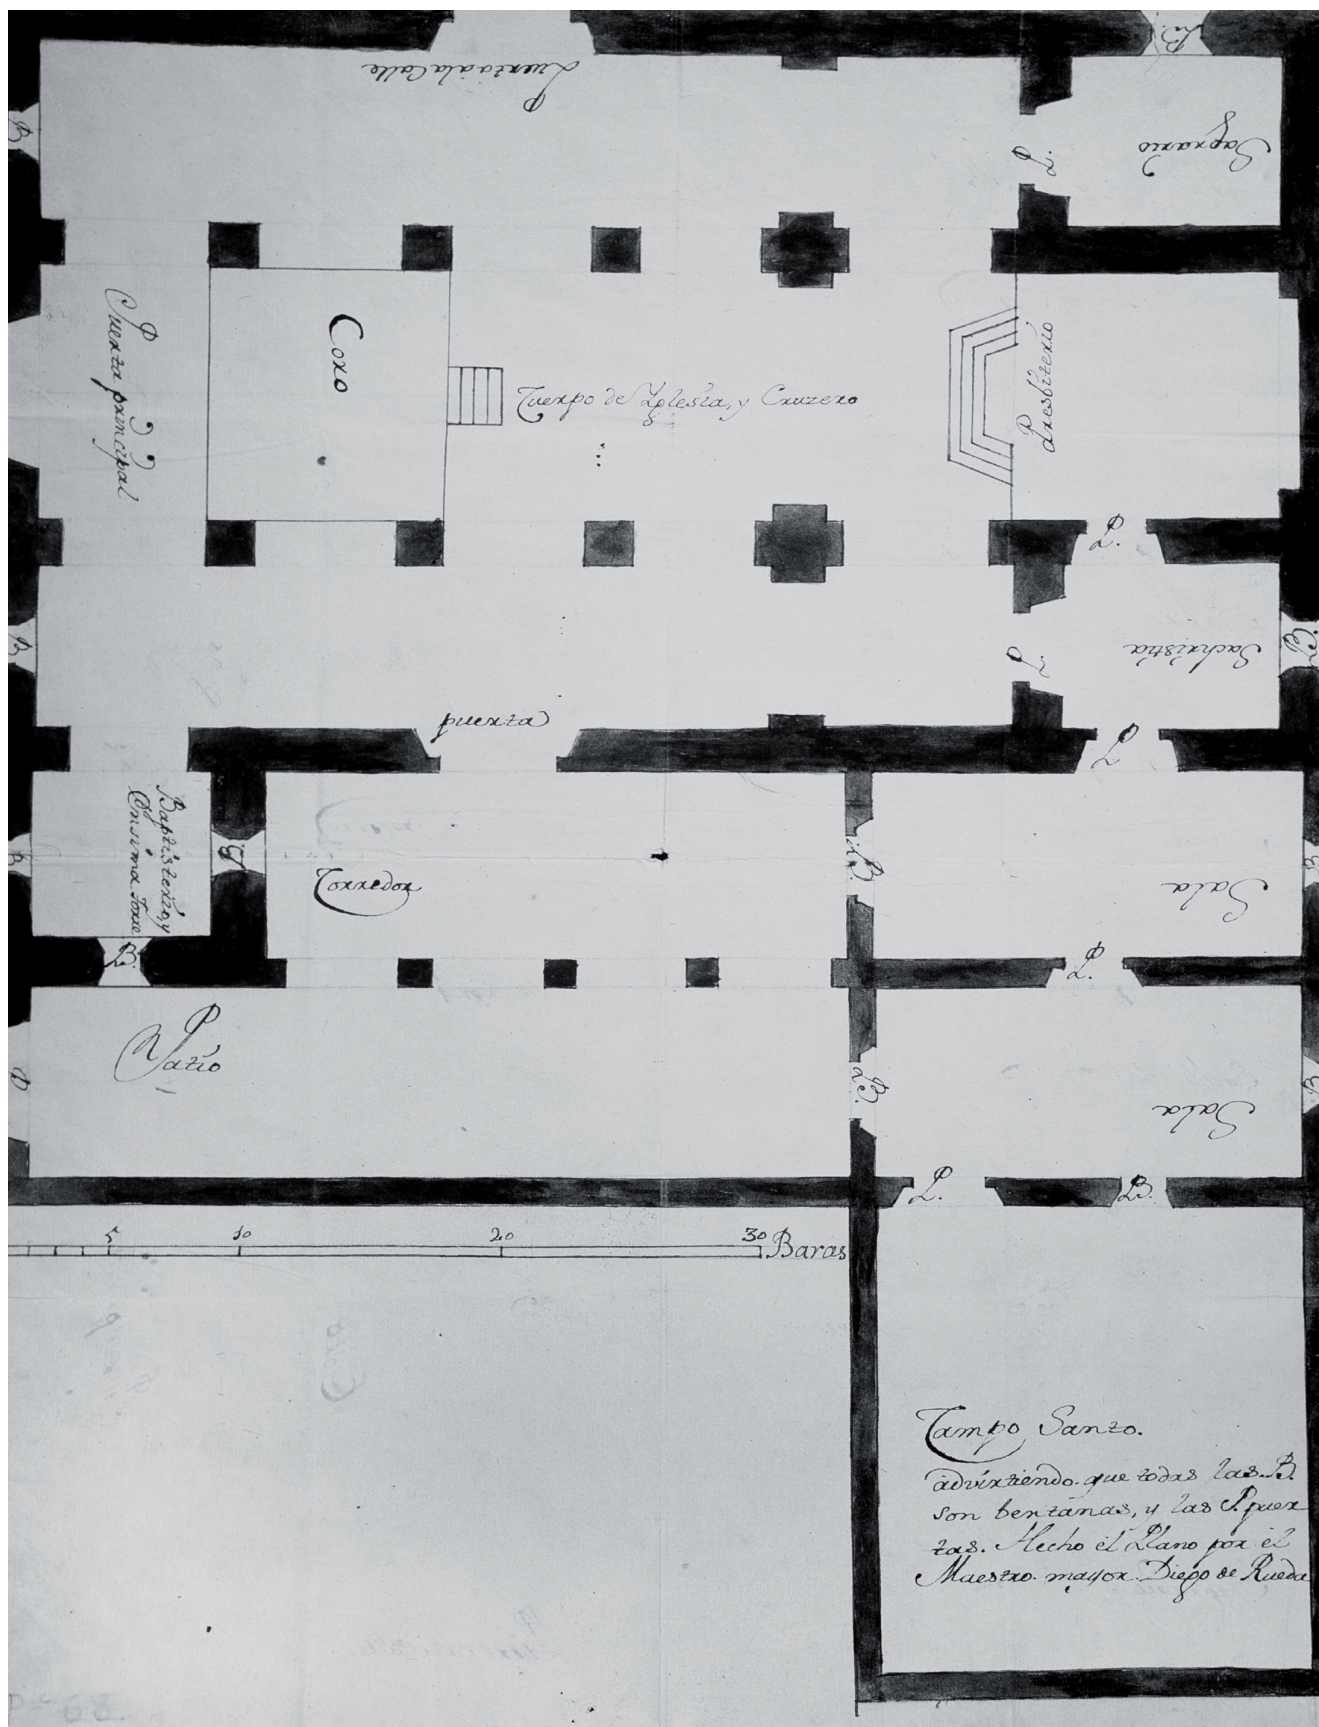 B.
Puerta a la Calle
B
P.
Sagrario
Puerta principal
Coro
Cuerpo de Yglesia, y Cruzero
Presbiterio
P.
B
P.
Sachristia
B
puerta
P.
Baptisterio, y
Ensima Torre
B
B
B.
Corredor
B.
Sala
B.
P.
Patio
P
B.
Sala
B.
P.
B.
5 10 20 30 Baras
Campo Santo.
advirtiendo que todas las B.
son bentanas, y las P. puer
tas. Hecho el Plano por el
Maestro mayor Diego de Rueda